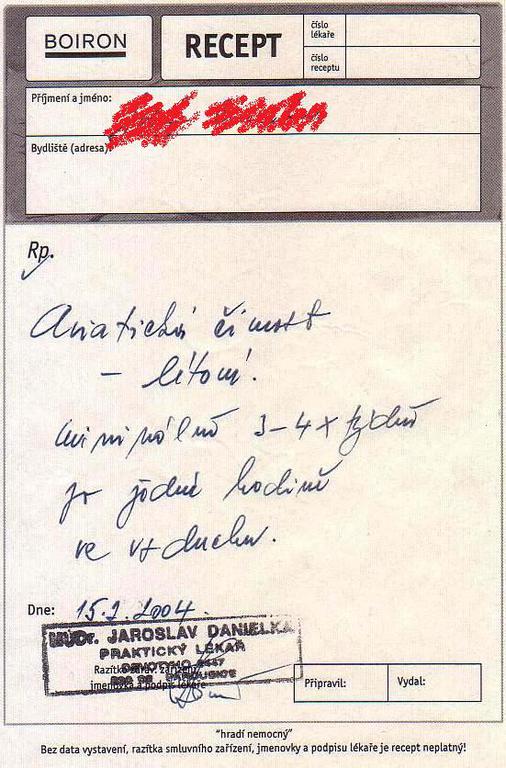 BOIRON
RECEPT
číslo
lékaře
číslo
receptu
Příjmení a jméno:
Bydliště (adresa):
Rp.
Aviatická činnost
– létání.
minimálně 3–4x týdně
po jedné hodině
ve vzduchu.
Dne: 15.2.2004.
MUDr. JAROSLAV DANIELKA
PRAKTICKÝ LÉKAŘ
Razítko zdrav. zařízení
jmenovka a podpis lékaře
Připravil:
Vydal:
"hradí nemocný"
Bez data vystavení, razítka smluvního zařízení, jmenovky a podpisu lékaře je recept neplatný!